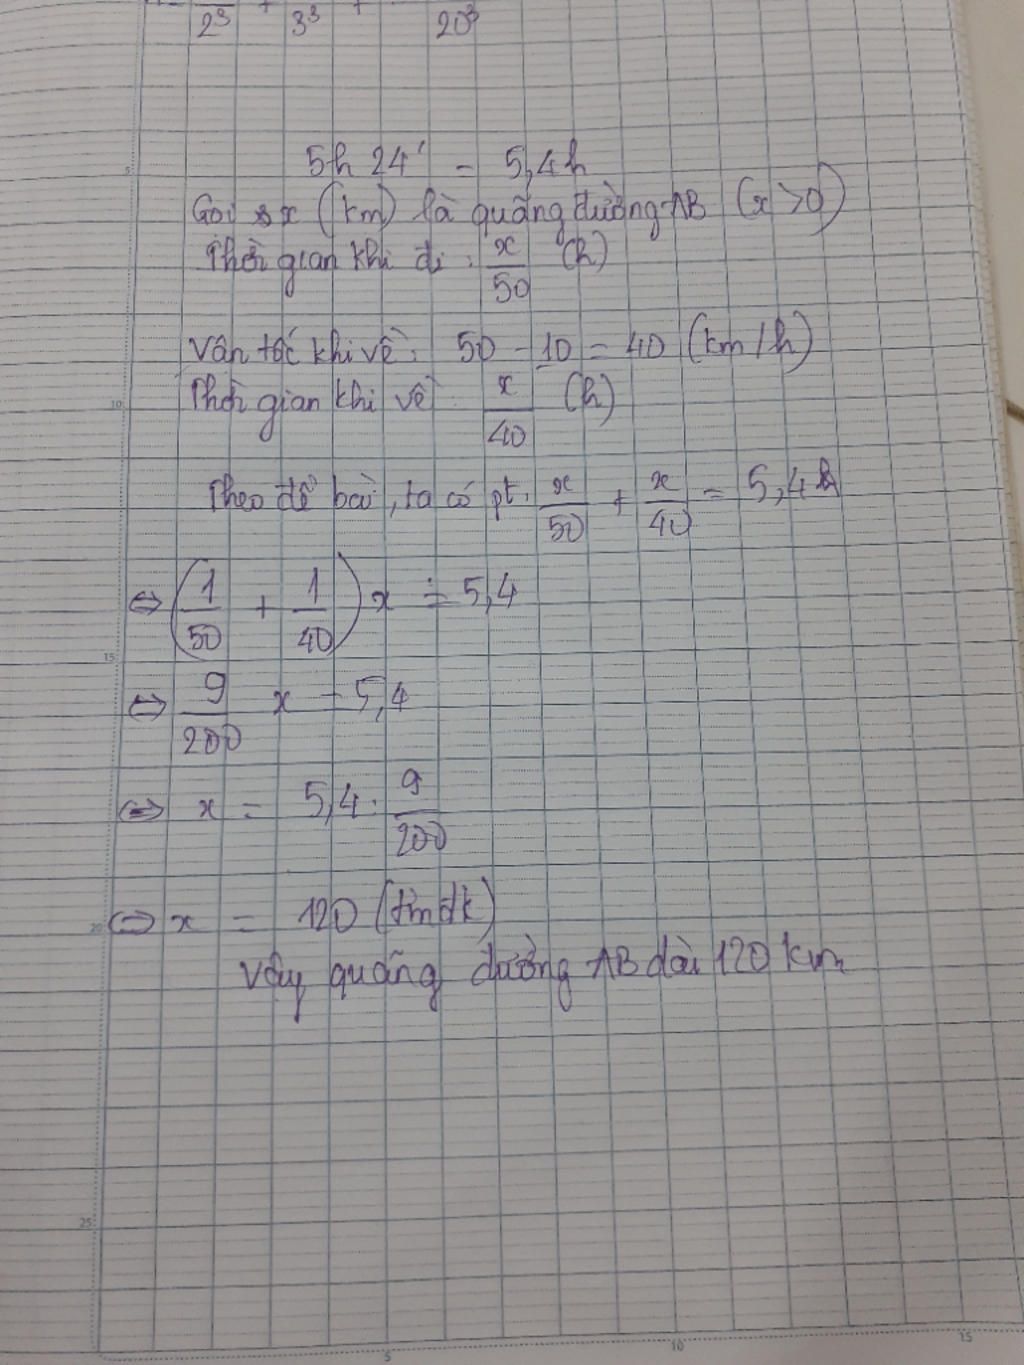 2³ + 3³ + 20³
5h 24' = 5,4h
Gọi x (km) là quãng đường AB (x > 0)
Thời gian khi đi : x/50 (h)
Vận tốc khi về : 50 - 10 = 40 (km/h)
Thời gian khi về : x/40 (h)
Theo đề bài, ta có pt : x/50 + x/40 = 5,4
⇔ (1/50 + 1/40) x = 5,4
⇔ 9/200 x = 5,4
⇔ x = 5,4 : 9/200
⇔ x = 120 (tmđk)
Vậy quãng đường AB dài 120 km